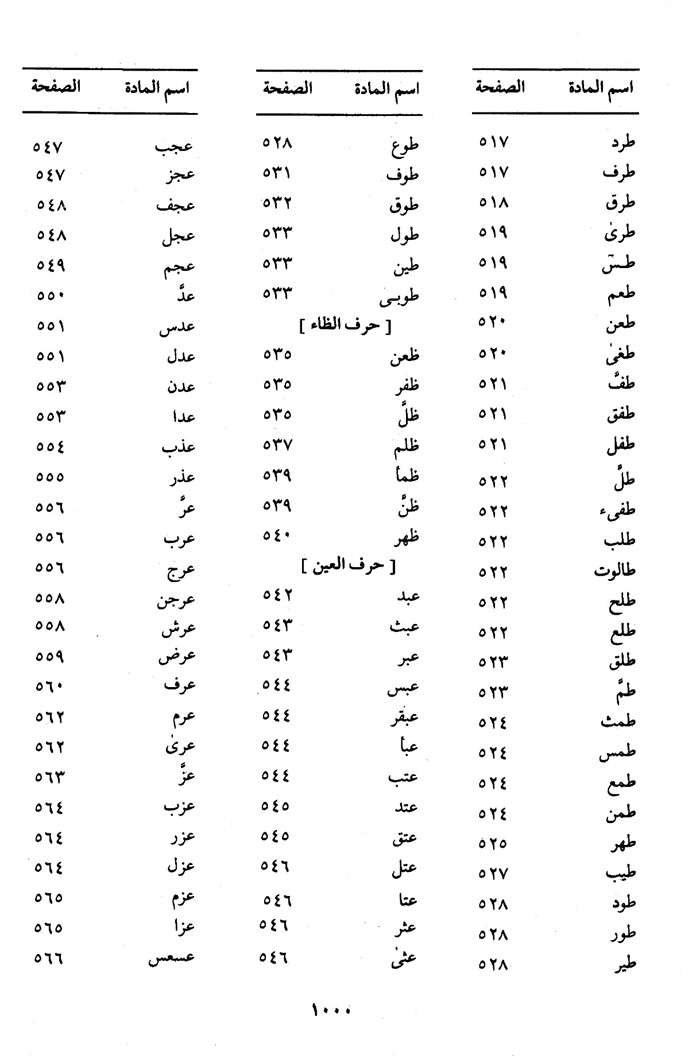 اسم المادة الصفحة
طرد ٥١٧
طرف ٥١٧
طرق ٥١٨
طرىٰ ٥١٩
طسٓ ٥١٩
طعم ٥١٩
طعن ٥٢٠
طغىٰ ٥٢٠
طفَّ ٥٢١
طفق ٥٢١
طفل ٥٢١
طلَّ ٥٢٢
طفىء ٥٢٢
طلب ٥٢٢
طالوت ٥٢٢
طلح ٥٢٢
طلع ٥٢٢
طلق ٥٢٣
طمَّ ٥٢٣
طمث ٥٢٤
طمس ٥٢٤
طمع ٥٢٤
طمن ٥٢٤
طهر ٥٢٥
طيب ٥٢٧
طود ٥٢٨
طور ٥٢٨
طير ٥٢٨
اسم المادة الصفحة
طوع ٥٢٨
طوف ٥٣١
طوق ٥٣٢
طول ٥٣٣
طين ٥٣٣
طوبى ٥٣٣
[ حرف الظاء ]
ظعن ٥٣٥
ظفر ٥٣٥
ظلَّ ٥٣٥
ظلم ٥٣٧
ظمأ ٥٣٩
ظنَّ ٥٣٩
ظهر ٥٤٠
[ حرف العين ]
عبد ٥٤٢
عبث ٥٤٣
عبر ٥٤٣
عبس ٥٤٤
عبقر ٥٤٤
عبأ ٥٤٤
عتب ٥٤٤
عتد ٥٤٥
عتق ٥٤٥
عتل ٥٤٦
عتا ٥٤٦
عثر ٥٤٦
عثىٰ ٥٤٦
اسم المادة الصفحة
عجب ٥٤٧
عجز ٥٤٧
عجف ٥٤٨
عجل ٥٤٨
عجم ٥٤٩
عدَّ ٥٥٠
عدس ٥٥١
عدل ٥٥١
عدن ٥٥٣
عدا ٥٥٣
عذب ٥٥٤
عذر ٥٥٥
عرَّ ٥٥٦
عرب ٥٥٦
عرج ٥٥٦
عرجن ٥٥٨
عرش ٥٥٨
عرض ٥٥٩
عرف ٥٦٠
عرم ٥٦٢
عرىٰ ٥٦٢
عزَّ ٥٦٣
عزب ٥٦٤
عزر ٥٦٤
عزل ٥٦٤
عزم ٥٦٥
عزا ٥٦٥
عسعس ٥٦٦
١٠٠٠